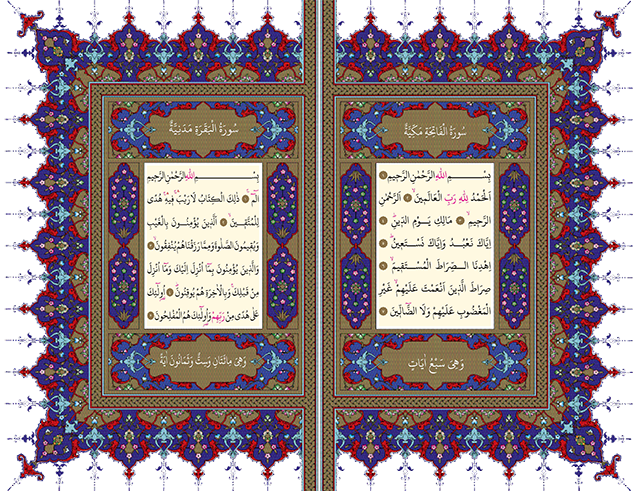 سُورَةُ الْفَاتِحَةِ مَكِّيَّةٌ
بِسْمِ اللّٰهِ الرَّحْمٰنِ الرَّحِيمِ ۝
اَلْحَمْدُ لِلّٰهِ رَبِّ الْعَالَمِينَۙ ۝ اَلرَّحْمٰنِ
الرَّحِيمِۙ ۝ مَالِكِ يَوْمِ الدِّينِۜ ۝
اِيَّاكَ نَعْبُدُ وَاِيَّاكَ نَسْتَعِينُۜ ۝
اِهْدِنَا الصِّرَاطَ الْمُسْتَقِيمَۙ ۝
صِرَاطَ الَّذِينَ اَنْعَمْتَ عَلَيْهِمْۙ غَيْرِ
الْمَغْضُوبِ عَلَيْهِمْ وَلَا الضَّٓالِّينَ ۝
وَهِيَ سَبْعُ اٰيَاتٍ
سُورَةُ الْبَقَرَةِ مَدَنِيَّةٌ
بِسْمِ اللّٰهِ الرَّحْمٰنِ الرَّحِيمِ
الٓمٓۚ ۝ ذٰلِكَ الْكِتَابُ لَا رَيْبَۚۛ فِيهِۚۛ هُدًى
لِلْمُتَّقِينَۙ ۝ اَلَّذِينَ يُؤْمِنُونَ بِالْغَيْبِ
وَيُقِيمُونَ الصَّلٰوةَ وَمِمَّا رَزَقْنَاهُمْ يُنْفِقُونَۙ ۝
وَالَّذِينَ يُؤْمِنُونَ بِمَٓا اُنْزِلَ اِلَيْكَ وَمَٓا اُنْزِلَ
مِنْ قَبْلِكَۚ وَبِالْاٰخِرَةِ هُمْ يُوقِنُونَۜ ۝ اُو۬لٰٓئِكَ
عَلٰى هُدًى مِنْ رَبِّهِمْ وَاُو۬لٰٓئِكَ هُمُ الْمُفْلِحُونَ ۝
وَهِيَ مِائَتَانِ وَسِتٌّ وَثَمَانُونَ اٰيَةً